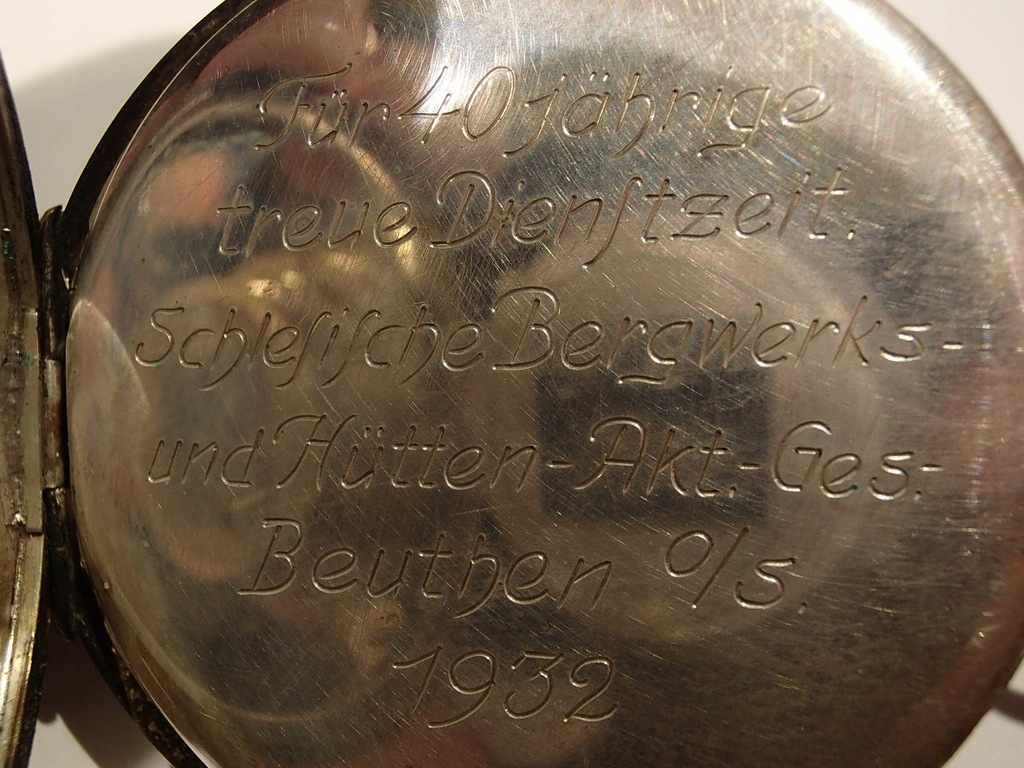 Für 40 jährige
treue Dienſtzeit.
Schleſiſche Bergwerks-
und Hütten-Akt.-Ges.-
Beuthen O/S.
1932